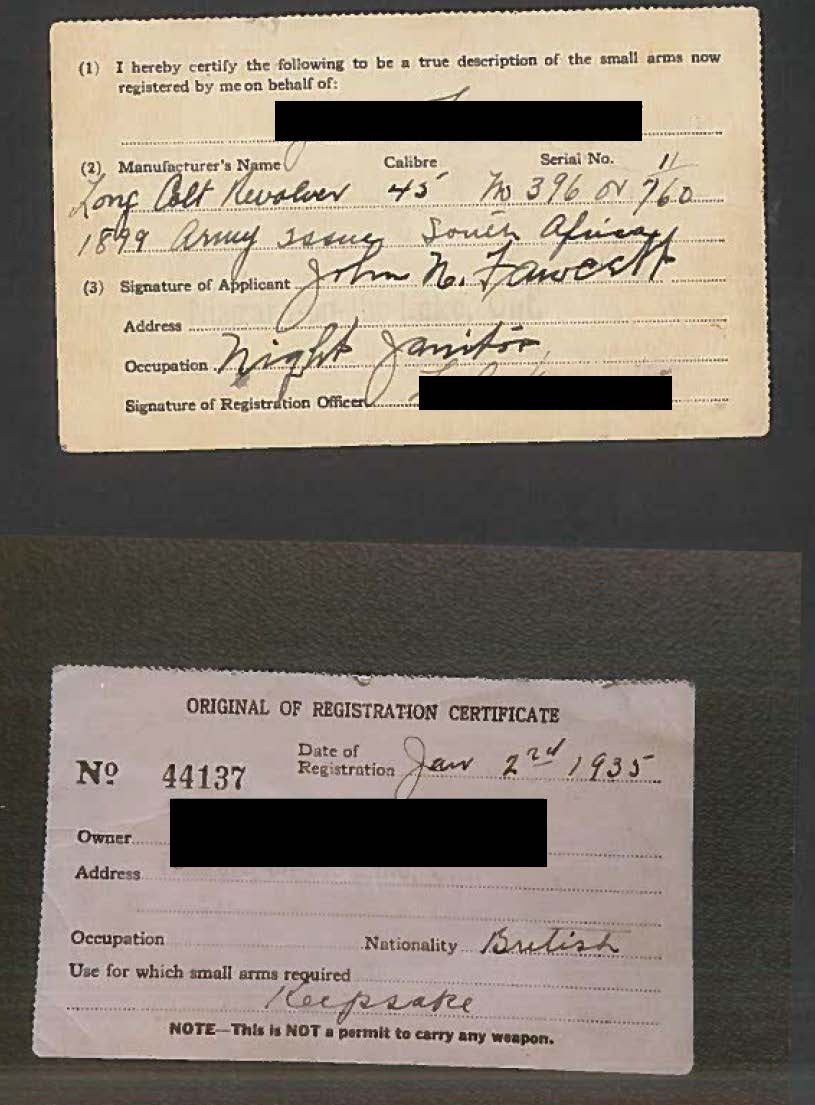 (1) I hereby certify the following to be a true description of the small arms now
registered by me on behalf of:
(2) Manufacturer's Name Calibre Serial No. 11
Long Colt Revolver 45 No 396 or 760
1899 Army issue South Africa
(3) Signature of Applicant John N. Fawcett
Address
Occupation Night Janitor
Signature of Registration Officer
ORIGINAL OF REGISTRATION CERTIFICATE
No 44137 Date of
Registration Jan 2nd 1935
Owner
Address
Occupation Nationality British
Use for which small arms required
Keepsake
NOTE—This is NOT a permit to carry any weapon.